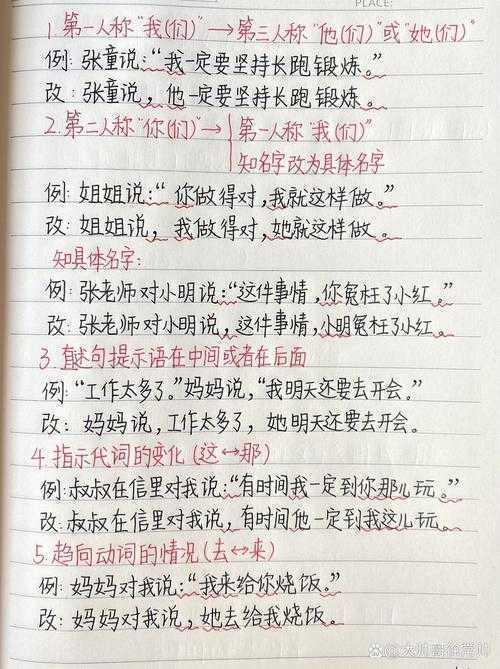 PLACE:
1. 第一人称“我(们)”→第三人称“他(们)”或“她(们)”
例: 张童说:“我一定要坚持长跑锻炼。”
改: 张童说, 他一定要坚持长跑锻炼。
2. 第二人称“你(们)”→ 第一人称“我(们)”
知名字改为具体名字
例: 姐姐说:“你做得对,我就这样做。”
改: 姐姐说, 我做得对,她就这样做。
知具体名字:
例: 张老师对小明说:“这件事情,你冤枉了小红。”
改: 张老师对小明说,这件事情,小明冤枉了小红。
3. 直述句提示语在中间或者在后面
例:“工作太多了。”妈妈说,“我明天还要去开会。”
改: 妈妈说,工作太多了, 她明天还要去开会。
4. 指示代词的变化(这↔那)
例:叔叔在信里对我说:“有时间我一定到你那儿玩。”
改:叔叔在信里对我说,有时间他一定到我这儿玩。
5. 趋向动词的情况(去↔来)
例: 妈妈对我说:“我来给你烧饭。”
改: 妈妈对我说,她去给我烧饭。